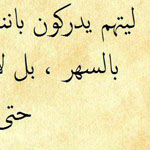 ليتهم يدركون باننا
بالسهر ، بل لا
حتى